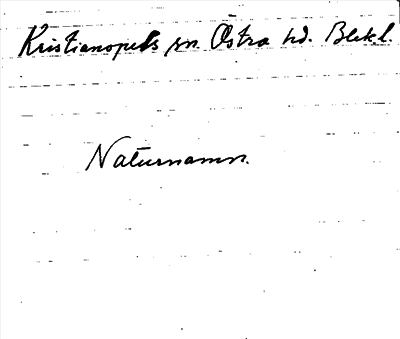 Kristianopels sn. Östra hd. Blek l.
Naturnamn.